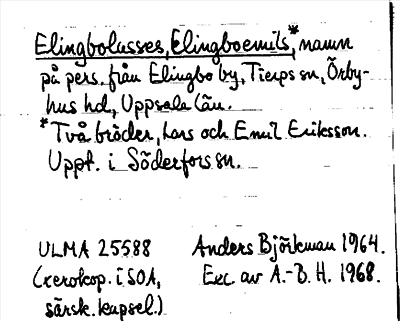 Elingbolasses, Elingboemils,* namn
på pers. från Elingbo by, Tierps sn, Örby-
hus hd, Uppsala län.
* Två bröder, Lars och Emil Eriksson.
Uppt. i Söderfors sn.
ULMA 25588
(xerokop. i SOA,
särsk. kapsel.)
Anders Björkman 1964.
Exc. av A.-B. H. 1968.